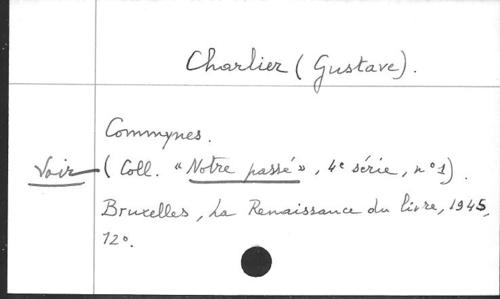 Charlier (Gustave).
Commynes.
Voir (Coll. "Notre passé", 4e série, n°1).
Bruxelles, La Renaissance du Livre, 1945,
12°.